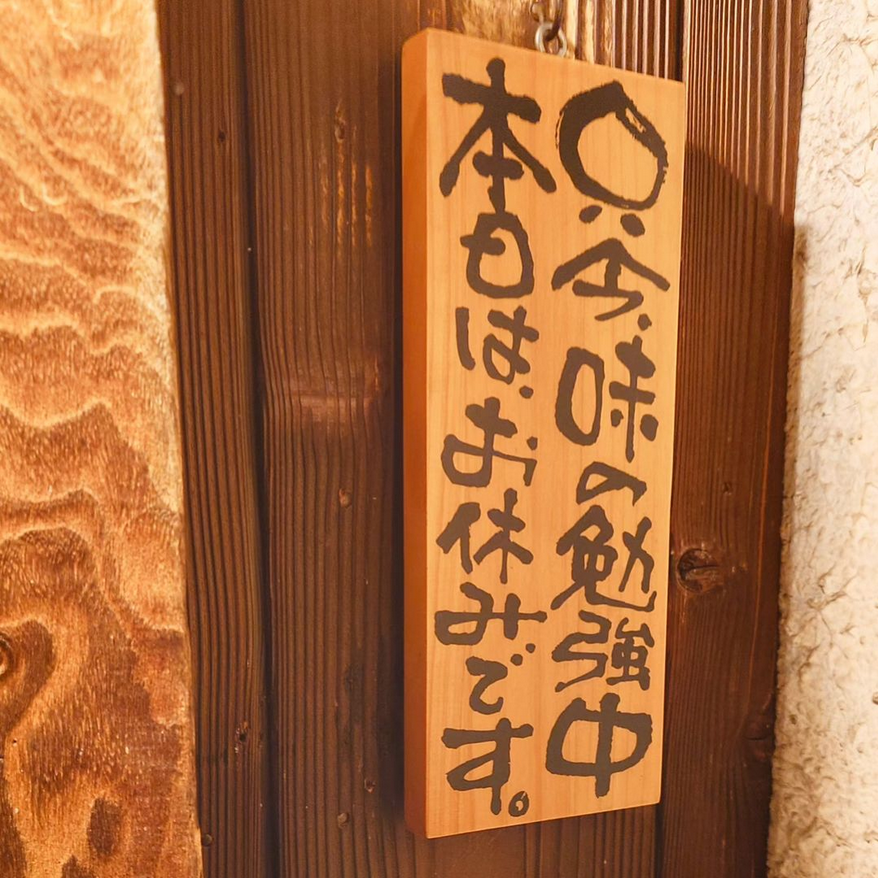 只今、味の勉強中
本日は、お休みです。